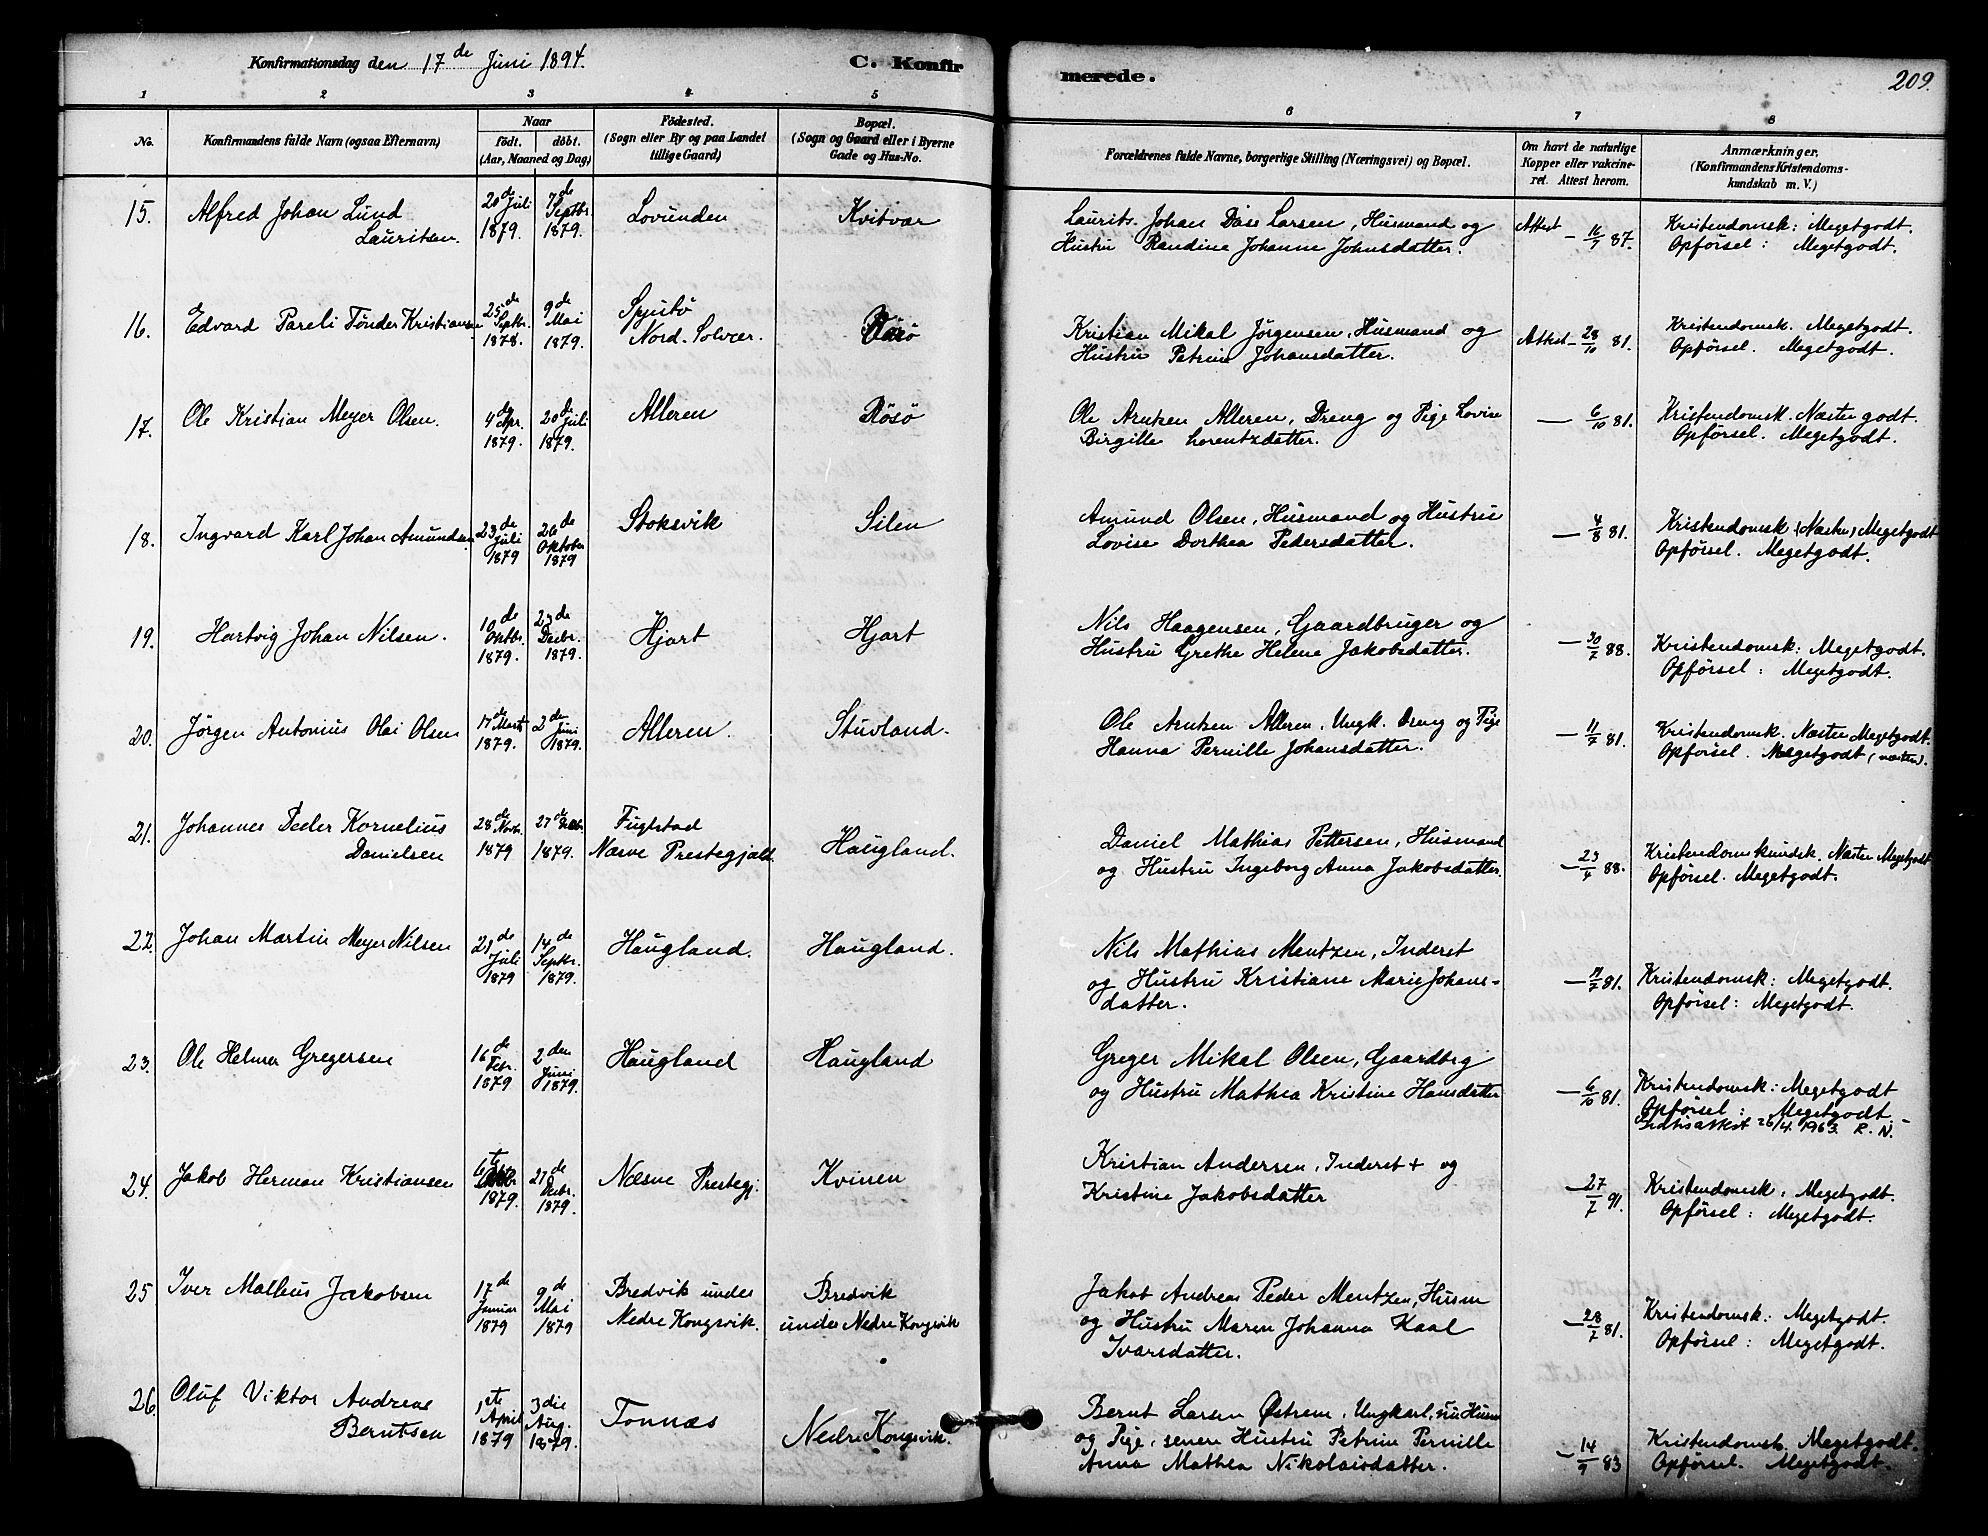 Konfirmationsdag den 17de Juni 1894.
C. Konfirmerede.
209.
1 2 3 4 5 6 7 8
No.
Konfirmandens fulde Navn (ogsaa Efternavn)
Naar
födt. döbt.
(Aar, Maaned og Dag)
Födested.
(Sogn eller By og paa Landet
tillige Gaard)
Bopæl.
(Sogn og Gaard eller i Byerne
Gade og Hus-No.
Forældrenes fulde Navne, borgerlige Stilling (Næringsvei) og Bopæl.
Om havt de naturlige
Kopper eller vakcine-
ret. Attest herom.
Anmærkninger.
(Konfirmandens Kristendoms-
kundskab m. V.)
15. Alfred Johan Lund
Lauritsen.
20de Juli 1879. 7de Septbr. 1879.
Lovunden
Kvitvar
Laurits Johan Dass Larsen, Husmand og
Hustru Randine Johanne Johnsdatter.
Attest — 16/9 87.
Kristendomsk: Megetgodt.
Opførsel: Megetgodt.
16. Edvard Pareli Tønder Kristiansen
25de Septbr. 1878. 9de Mai 1879.
Spjutø
Nord. Solvær.
Røsø
Kristian Mikal Jørgensen, Husmand og
Hustru Petrine Johansdatter.
Attest — 28/10 81.
Kristendomsk. Megetgodt.
Opførsel. Megetgodt.
17. Ole Kristian Meyer Olsen.
4de Apr. 1879. 20de Juli 1879.
Alleren
Røsø
Ole Arntzen Alleren, Dreng og Pige Lovise
Birgitte Lorentzdatter.
— 6/10 81.
Kristendomsk. Næsten godt.
Opførsel. Megetgodt.
18. Ingvard Karl Johan Amundsen
23de Juli 1879 26de Oktober 1879
Stoksvik
Silen
Amund Olsen, Husmand og Hustru
Lovise Dorthea Pedersdatter.
— 4/8 81.
Kristendomsk (Næsten) Megetgodt
Opførsel. Megetgodt.
19. Hartvig Johan Nilsen.
10de Oktbr. 1879. 27de Decbr. 1879.
Hjart
Hjart
Nils Haagensen, Gaardbruger og
Hustru Grethe Helene Jakobsdatter.
— 30/7 88.
Kristendomsk: Megetgodt.
Opførsel: Megetgodt.
20. Jørgen Antonius Olai Olsen
17de Marts 1879. 2den Juni 1879.
Alleren.
Stuvland.
Ole Arntzen Alleren, Ungk. Dreng og Pige
Hanna Pernille Johansdatter.
— 11/7 81.
Kristendomsk. Næsten Megetgodt.
Opførsel. Megetgodt (næsten).
21. Johannes Peder Kornelius
Danielsen
28de Novbr. 1879 27de Decbr. 1879.
Fuglstad
Næsne Prestegjæld.
Haugland.
Daniel Mathias Pettersen, Husmand
og Hustru Ingeborg Anna Jakobsdatter.
— 23/4 88.
Kristendomskundsk. Næsten Megetgodt
Opførsel. Megetgodt.
22. Johan Martin Meyer Nilsen
21de Juli 1879 14de Septbr. 1879.
Haugland.
Haugland.
Nils Mathias Mentzen, Inderst
og Hustru Kristiane Marie Johans-
datter.
— 11/7 81.
Kristendomsk: Megetgodt.
Opførsel: Megetgodt.
23. Ole Helmer Gregersen
16de Febr. 1879 2den Juni 1879.
Haugland
Haugland
Greger Mikal Olsen, Gaardbrg
og Hustru Mathea Kristine Hansdatter
— 6/10 81.
Kristendomsk: Megetgodt
Opførsel: Megetgodt.
26/4 1963. R. N.
24. Jakob Herman Kristiansen
6te 1879. 27de Decbr. 1879.
Næsne Prestegj.
Kvinen
Kristian Andersen, Inderst + og
Kristine Jakobsdatter
— 27/7 91.
Kristendomsk. Megetgodt.
Opførsel: Megetgodt.
25 Iver Matheus Jakobsen
17de Januar 1879 9de Mai 1879
Bredvik under
Nedre Kongsvik.
Bredvik
under Nedre Kongsvik
Jakob Andreas Peder Mentzen, Husm
og Hustru Maren Johanna Kaal
Ivarsdatter.
— 28/7 81.
Kristendomsk: Megetgodt.
Opførsel: Megetgodt.
26. Oluf Viktor Andreas
Berntsen
1ste April 1879 3die Aug. 1879.
Tonnæs
Nedre Kongsvik.
Bernt Larsen Østrem, Ungkarl, nu Husm
og Pige, senere Hustru Petrine Pernille
Anna Mathea Nikolaisdatter.
— 14/9 83
Kristendomsk. Megetgodt.
Opførsel. Megetgodt.